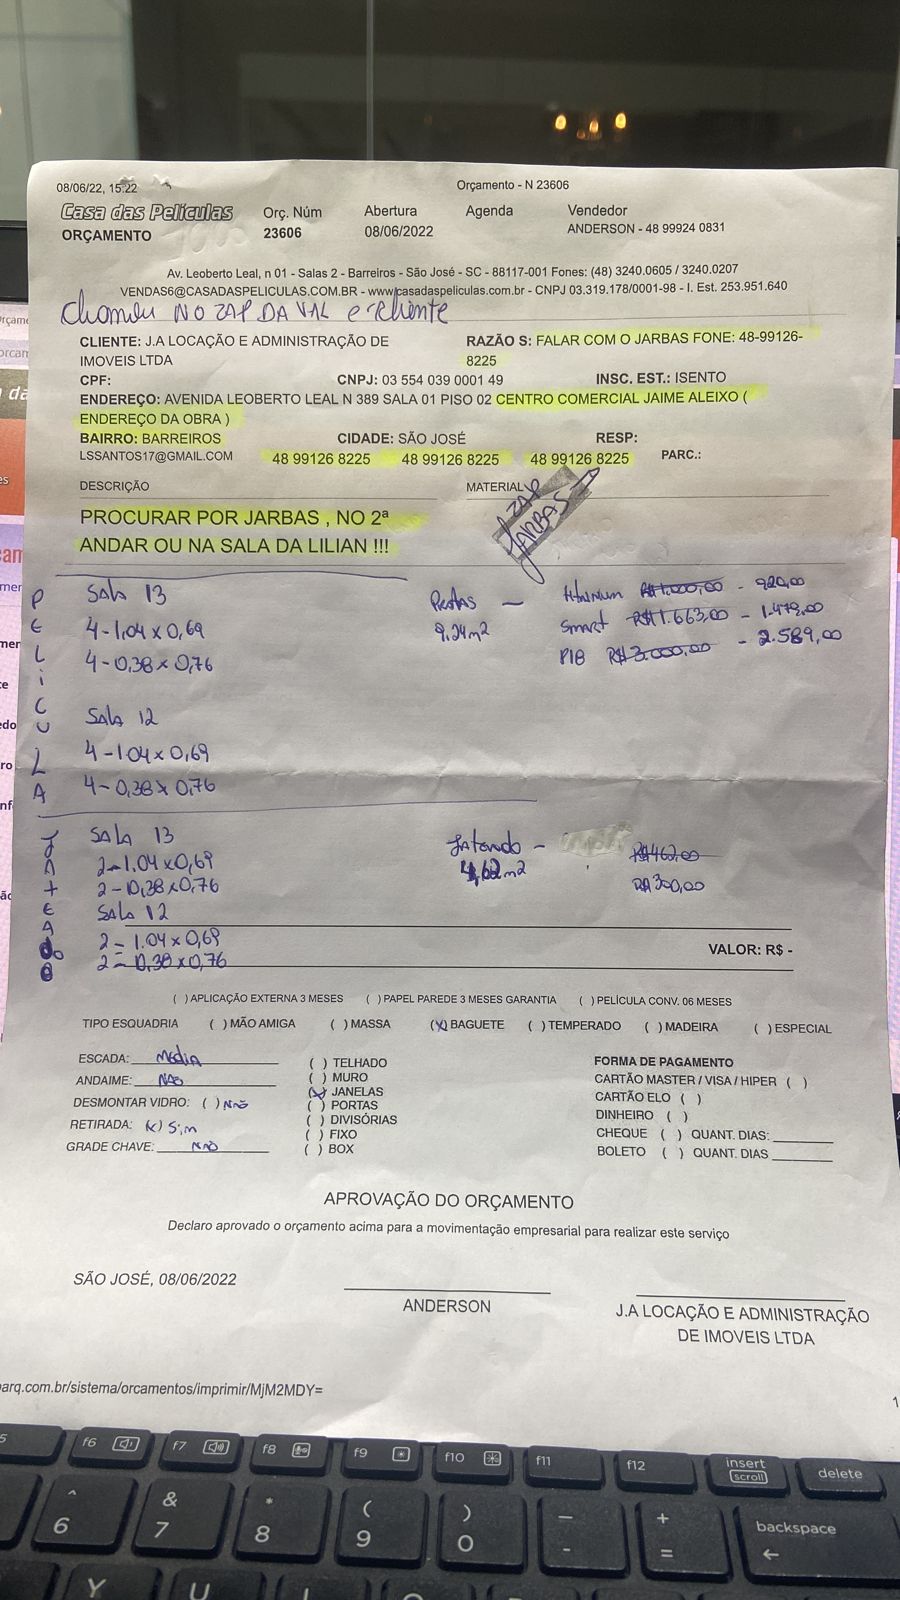 08/06/22, 15:22
Orçamento - N 23606
Casa das Películas
ORÇAMENTO
Orç. Núm
23606
Abertura
08/06/2022
Agenda
Vendedor
ANDERSON - 48 99924 0831
Av. Leoberto Leal, n 01 - Salas 2 - Barreiros - São José - SC - 88117-001 Fones: (48) 3240.0605 / 3240.0207
VENDAS6@CASADASPELICULAS.COM.BR - www.casadaspeliculas.com.br - CNPJ 03.319.178/0001-98 - I. Est. 253.951.640
Chamou NO ZAP DA VAL e cliente
CLIENTE: J.A LOCAÇÃO E ADMINISTRAÇÃO DE
IMOVEIS LTDA
RAZÃO S: FALAR COM O JARBAS FONE: 48-99126-
8225
CPF:
CNPJ: 03 554 039 0001 49
INSC. EST.: ISENTO
ENDEREÇO: AVENIDA LEOBERTO LEAL N 389 SALA 01 PISO 02 CENTRO COMERCIAL JAIME ALEIXO (
ENDEREÇO DA OBRA )
BAIRRO: BARREIROS
CIDADE: SÃO JOSÉ
RESP:
LSSANTOS17@GMAIL.COM
48 99126 8225
48 99126 8225
48 99126 8225
PARC.:
DESCRIÇÃO
MATERIAL
ZAP
JARBAS
PROCURAR POR JARBAS , NO 2ª
ANDAR OU NA SALA DA LILIAN !!!
PELíCULA
Sala 13
4-1,04 x 0,69
4-0,38 x 0,76
9,24m2
titanium R$1.000,00 - 920,00
Smart R$1.663,00 - 1.479,00
P18 R$3.000,00 - 2.589,00
Sala 12
4-1.04 x 0,69
4-0,38 x 0,76
JATEADo
SALA 13
2-1.04 x 0,69
2-0,38 x 0,76
SALA 12
2-1.04 x 0,69
2-0,38 x 0,76
Jateado -
4,62m2
R$462,00
R$300,00
VALOR: R$ -
( ) APLICAÇÃO EXTERNA 3 MESES ( ) PAPEL PAREDE 3 MESES GARANTIA ( ) PELÍCULA CONV. 06 MESES
TIPO ESQUADRIA ( ) MÃO AMIGA ( ) MASSA (x) BAGUETE ( ) TEMPERADO ( ) MADEIRA ( ) ESPECIAL
ESCADA: Média
ANDAIME: NÃO
DESMONTAR VIDRO: ( ) NÃO
RETIRADA: (x) Sim
GRADE CHAVE: NÃO
( ) TELHADO
( ) MURO
(x) JANELAS
( ) PORTAS
( ) DIVISÓRIAS
( ) FIXO
( ) BOX
FORMA DE PAGAMENTO
CARTÃO MASTER / VISA / HIPER ( )
CARTÃO ELO ( )
DINHEIRO ( )
CHEQUE ( ) QUANT. DIAS:
BOLETO ( ) QUANT. DIAS
APROVAÇÃO DO ORÇAMENTO
Declaro aprovado o orçamento acima para a movimentação empresarial para realizar este serviço
SÃO JOSÉ, 08/06/2022
ANDERSON
J.A LOCAÇÃO E ADMINISTRAÇÃO
DE IMOVEIS LTDA
arq.com.br/sistema/orcamentos/imprimir/MjM2MDY=
1
f6 f7 f8 f9 f10 f11 f12 insert scroll delete
^ 6 & 7 * 8 ( 9 ) 0 - + = backspace
Y U